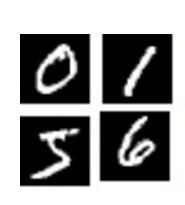 0 1
5 6